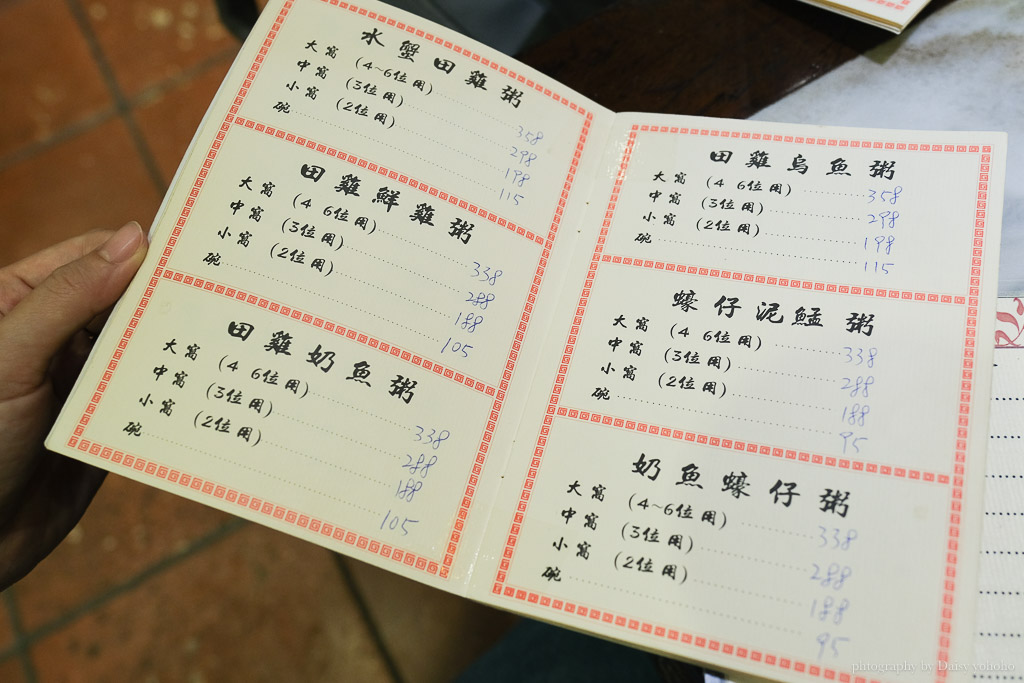 水蟹田雞粥
大窩 (4~6位用) 358
中窩 (3位用) 298
小窩 (2位用) 198
碗 115
田雞鮮雞粥
大窩 (4 6位用) 338
中窩 (3位用) 288
小窩 (2位用) 188
碗 105
田雞奶魚粥
大窩 (4 6位用) 338
中窩 (3位用) 288
小窩 (2位用) 188
碗 105
田雞烏魚粥
大窩 (4 6位用) 358
中窩 (3位用) 298
小窩 (2位用) 198
碗 115
蠔仔泥鯭粥
大窩 (4 6位用) 338
中窩 (3位用) 288
小窩 (2位用) 188
碗 95
奶魚蠔仔粥
大窩 (4~6位用) 338
中窩 (3位用) 288
小窩 (2位用) 188
碗 95
photography by Daisy yohoho